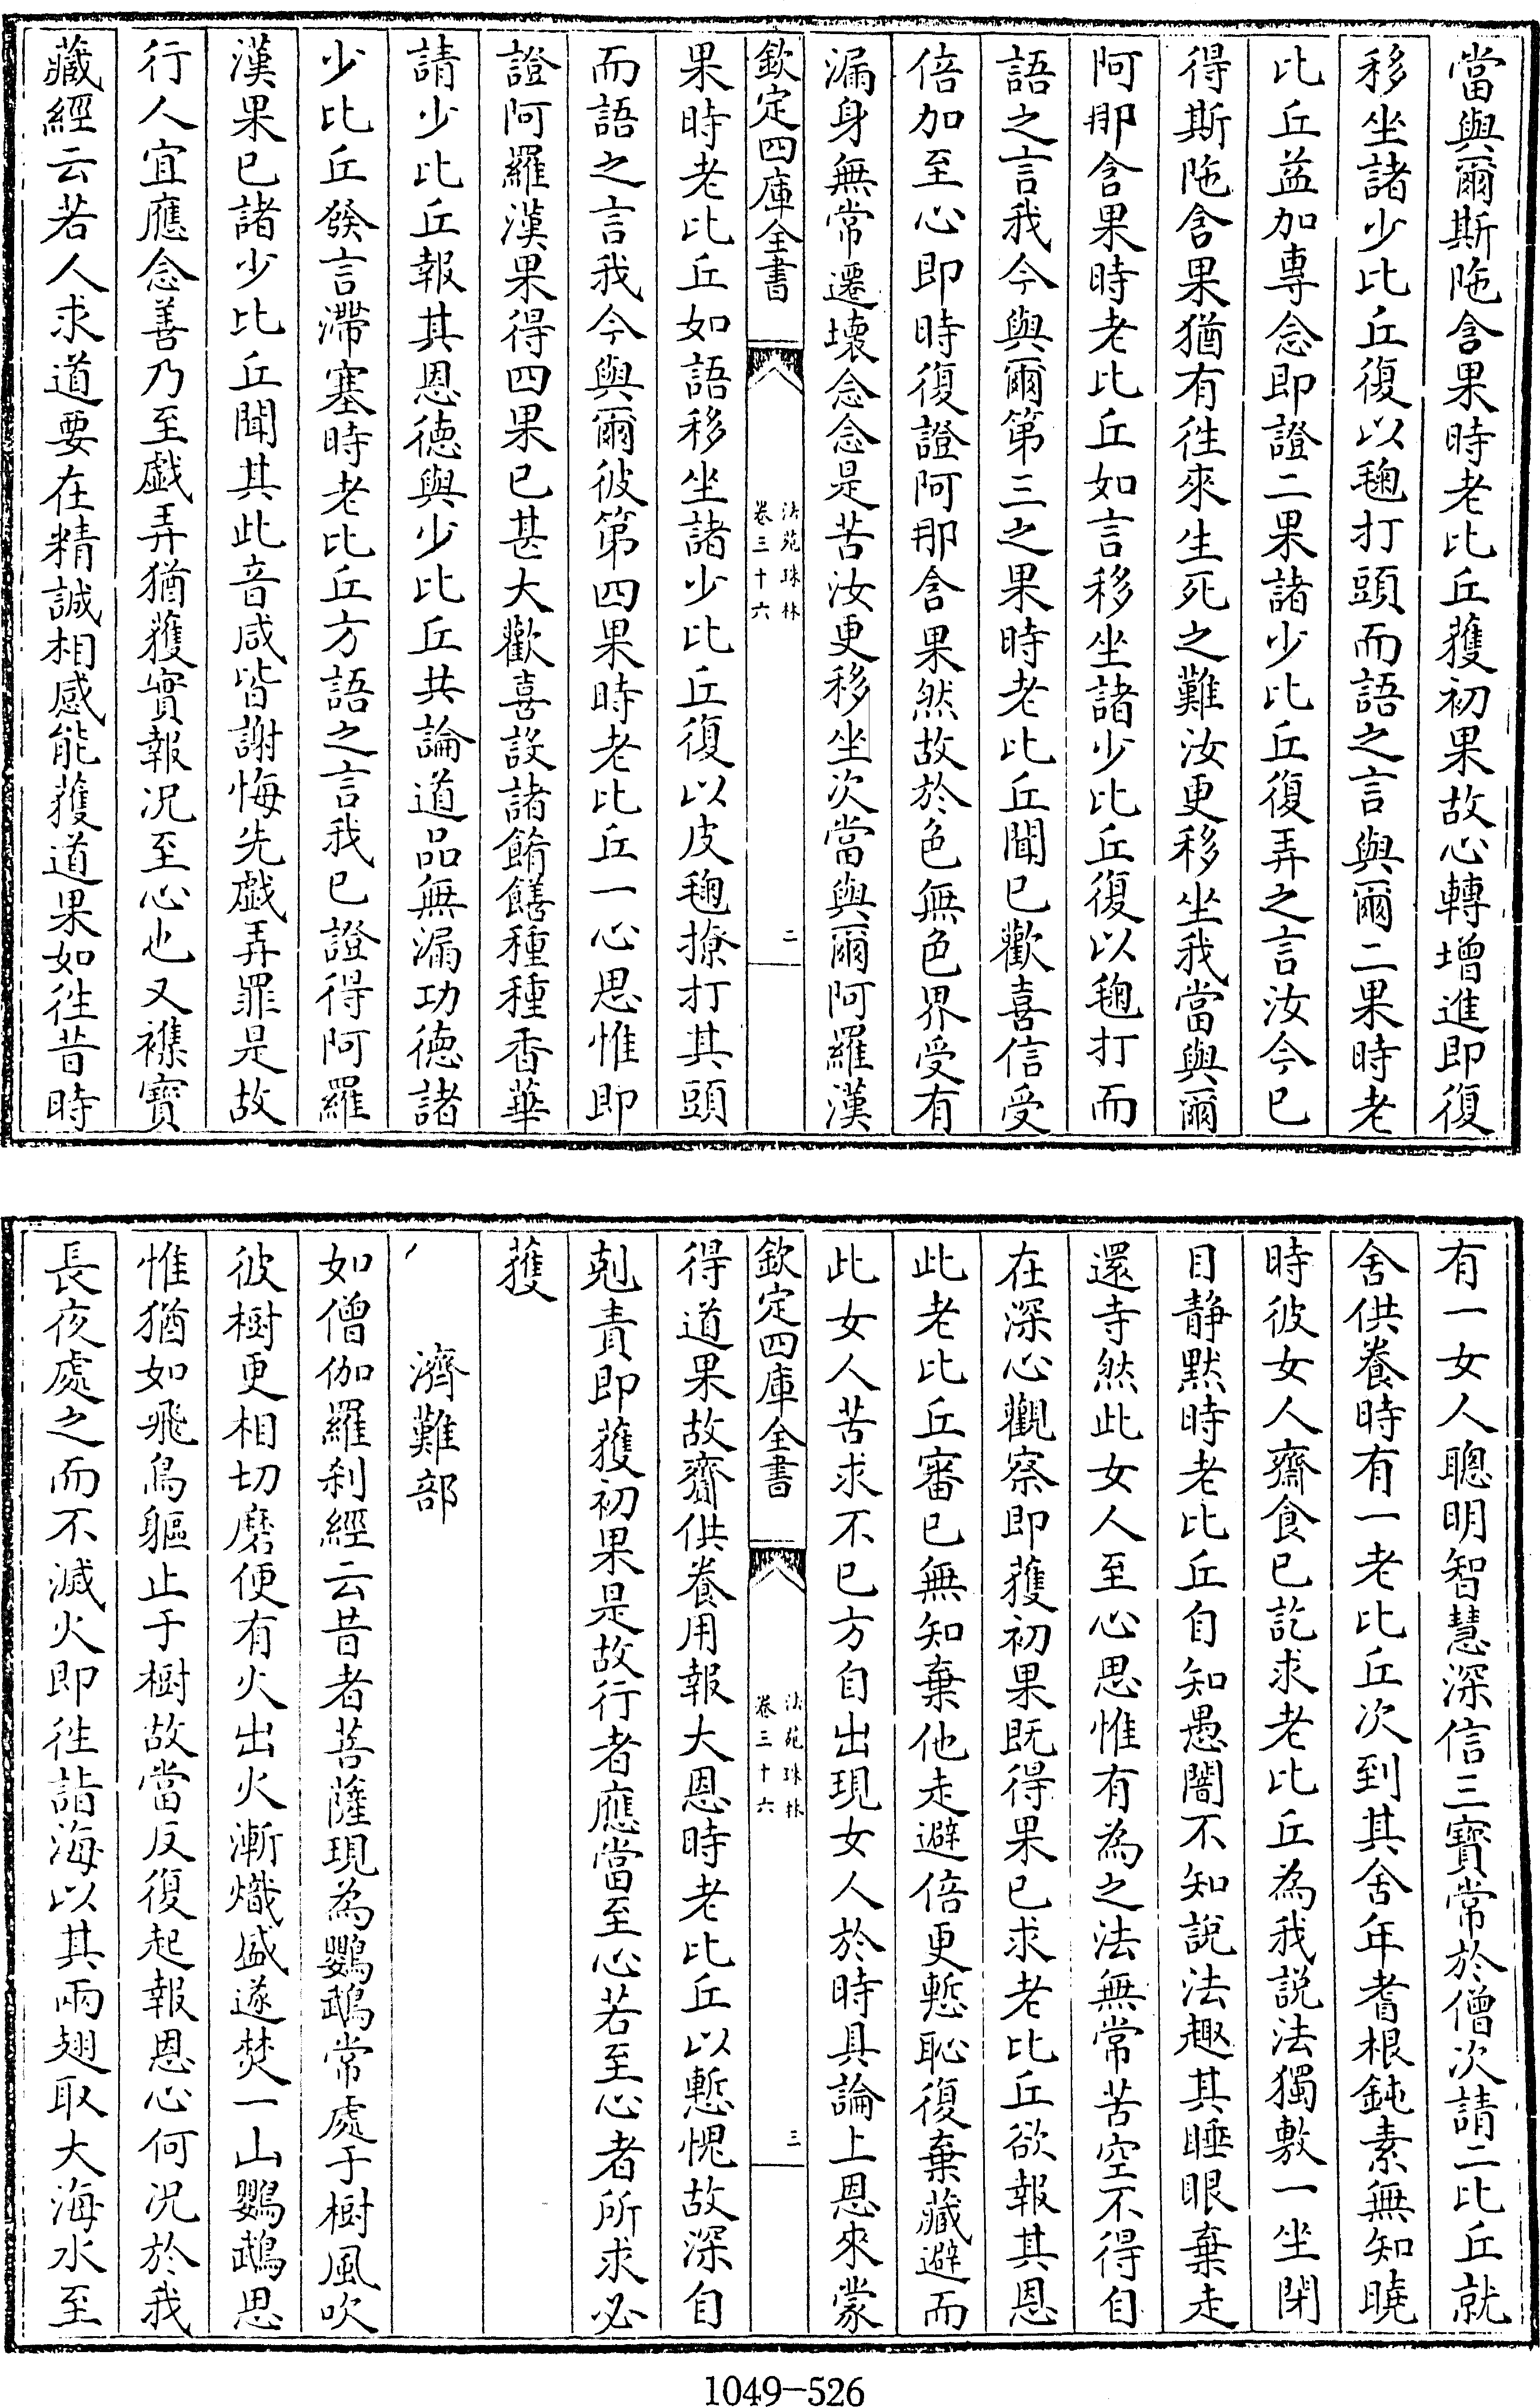 當與爾斯陁含果時老比丘獲初果故心轉增進即復
移坐諸少比丘復以毱打頭而語之言與爾二果時老
比丘益加專念即證二果諸少比丘復弄之言汝今已
得斯陁含果猶有徃來生死之難汝更移坐我當與爾
阿那含果時老比丘如言移坐諸少比丘復以毱打而
語之言我今與爾第三之果時老比丘聞已歡喜信受
倍加至心即時復證阿那含果然故於色無色界受有
漏身無常遷壞念念是苦汝更移坐次當與爾阿羅漢
欽定四庫全書 法苑珠林 卷三十六 二
果時老比丘如語移坐諸少比丘復以皮毱撩打其頭
而語之言我今與爾彼第四果時老比丘一心思惟即
證阿羅漢果得四果已甚大歡喜設諸餚饍種種香華
請少比丘報其恩徳與少比丘共論道品無漏功徳諸
少比丘發言滯塞時老比丘方語之言我已證得阿羅
漢果已諸少比丘聞其此音咸皆謝悔先戯弄罪是故
行人宜應念善乃至戯弄猶獲實報况至心也又襍寳
藏經云若人求道要在精誠相感能獲道果如徃昔時
有一女人聰明智慧深信三寳常於僧次請二比丘就
舍供養時有一老比丘次到其舍年耆根鈍素無知曉
時彼女人齋食已訖求老比丘為我説法獨敷一坐閉
目静黙時老比丘自知愚闇不知說法趣其睡眼棄走
還寺然此女人至心思惟有為之法無常苦空不得自
在深心觀察即獲初果既得果已求老比丘欲報其恩
此老比丘審已無知棄他走避倍更慙恥復棄藏避而
此女人苦求不已方自出現女人於時具論上恩來蒙
欽定四庫全書 法苑珠林 卷三十六 三
得道果故齎供養用報大恩時老比丘以慙愧故深自
剋責即獲初果是故行者應當至心若至心者所求必
獲
濟難部
如僧伽羅刹經云昔者菩薩現為鸚鵡常處于樹風吹
彼樹更相切磨便有火出火漸熾盛遂焚一山鸚鵡思
惟猶如飛鳥軀止于樹故當反復起報恩心何况於我
長夜處之而不滅火即徃詣海以其兩翅取大海水至
1049-526